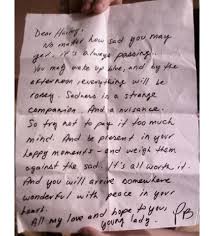 Dear Haley,
No matter how sad you may
get, it's always passing.
You may wake up blue, and by the
afternoon, everything will be
rosey. Sadness is a strange
companion. And a nuisance.
So try not to pay it too much
mind. And be present in your
happy moments - and weigh them
against the sad. It's all worth it.
And you will arrive somewhere
wonderful with peace in your
heart.
All my love and hope to you,
young lady.